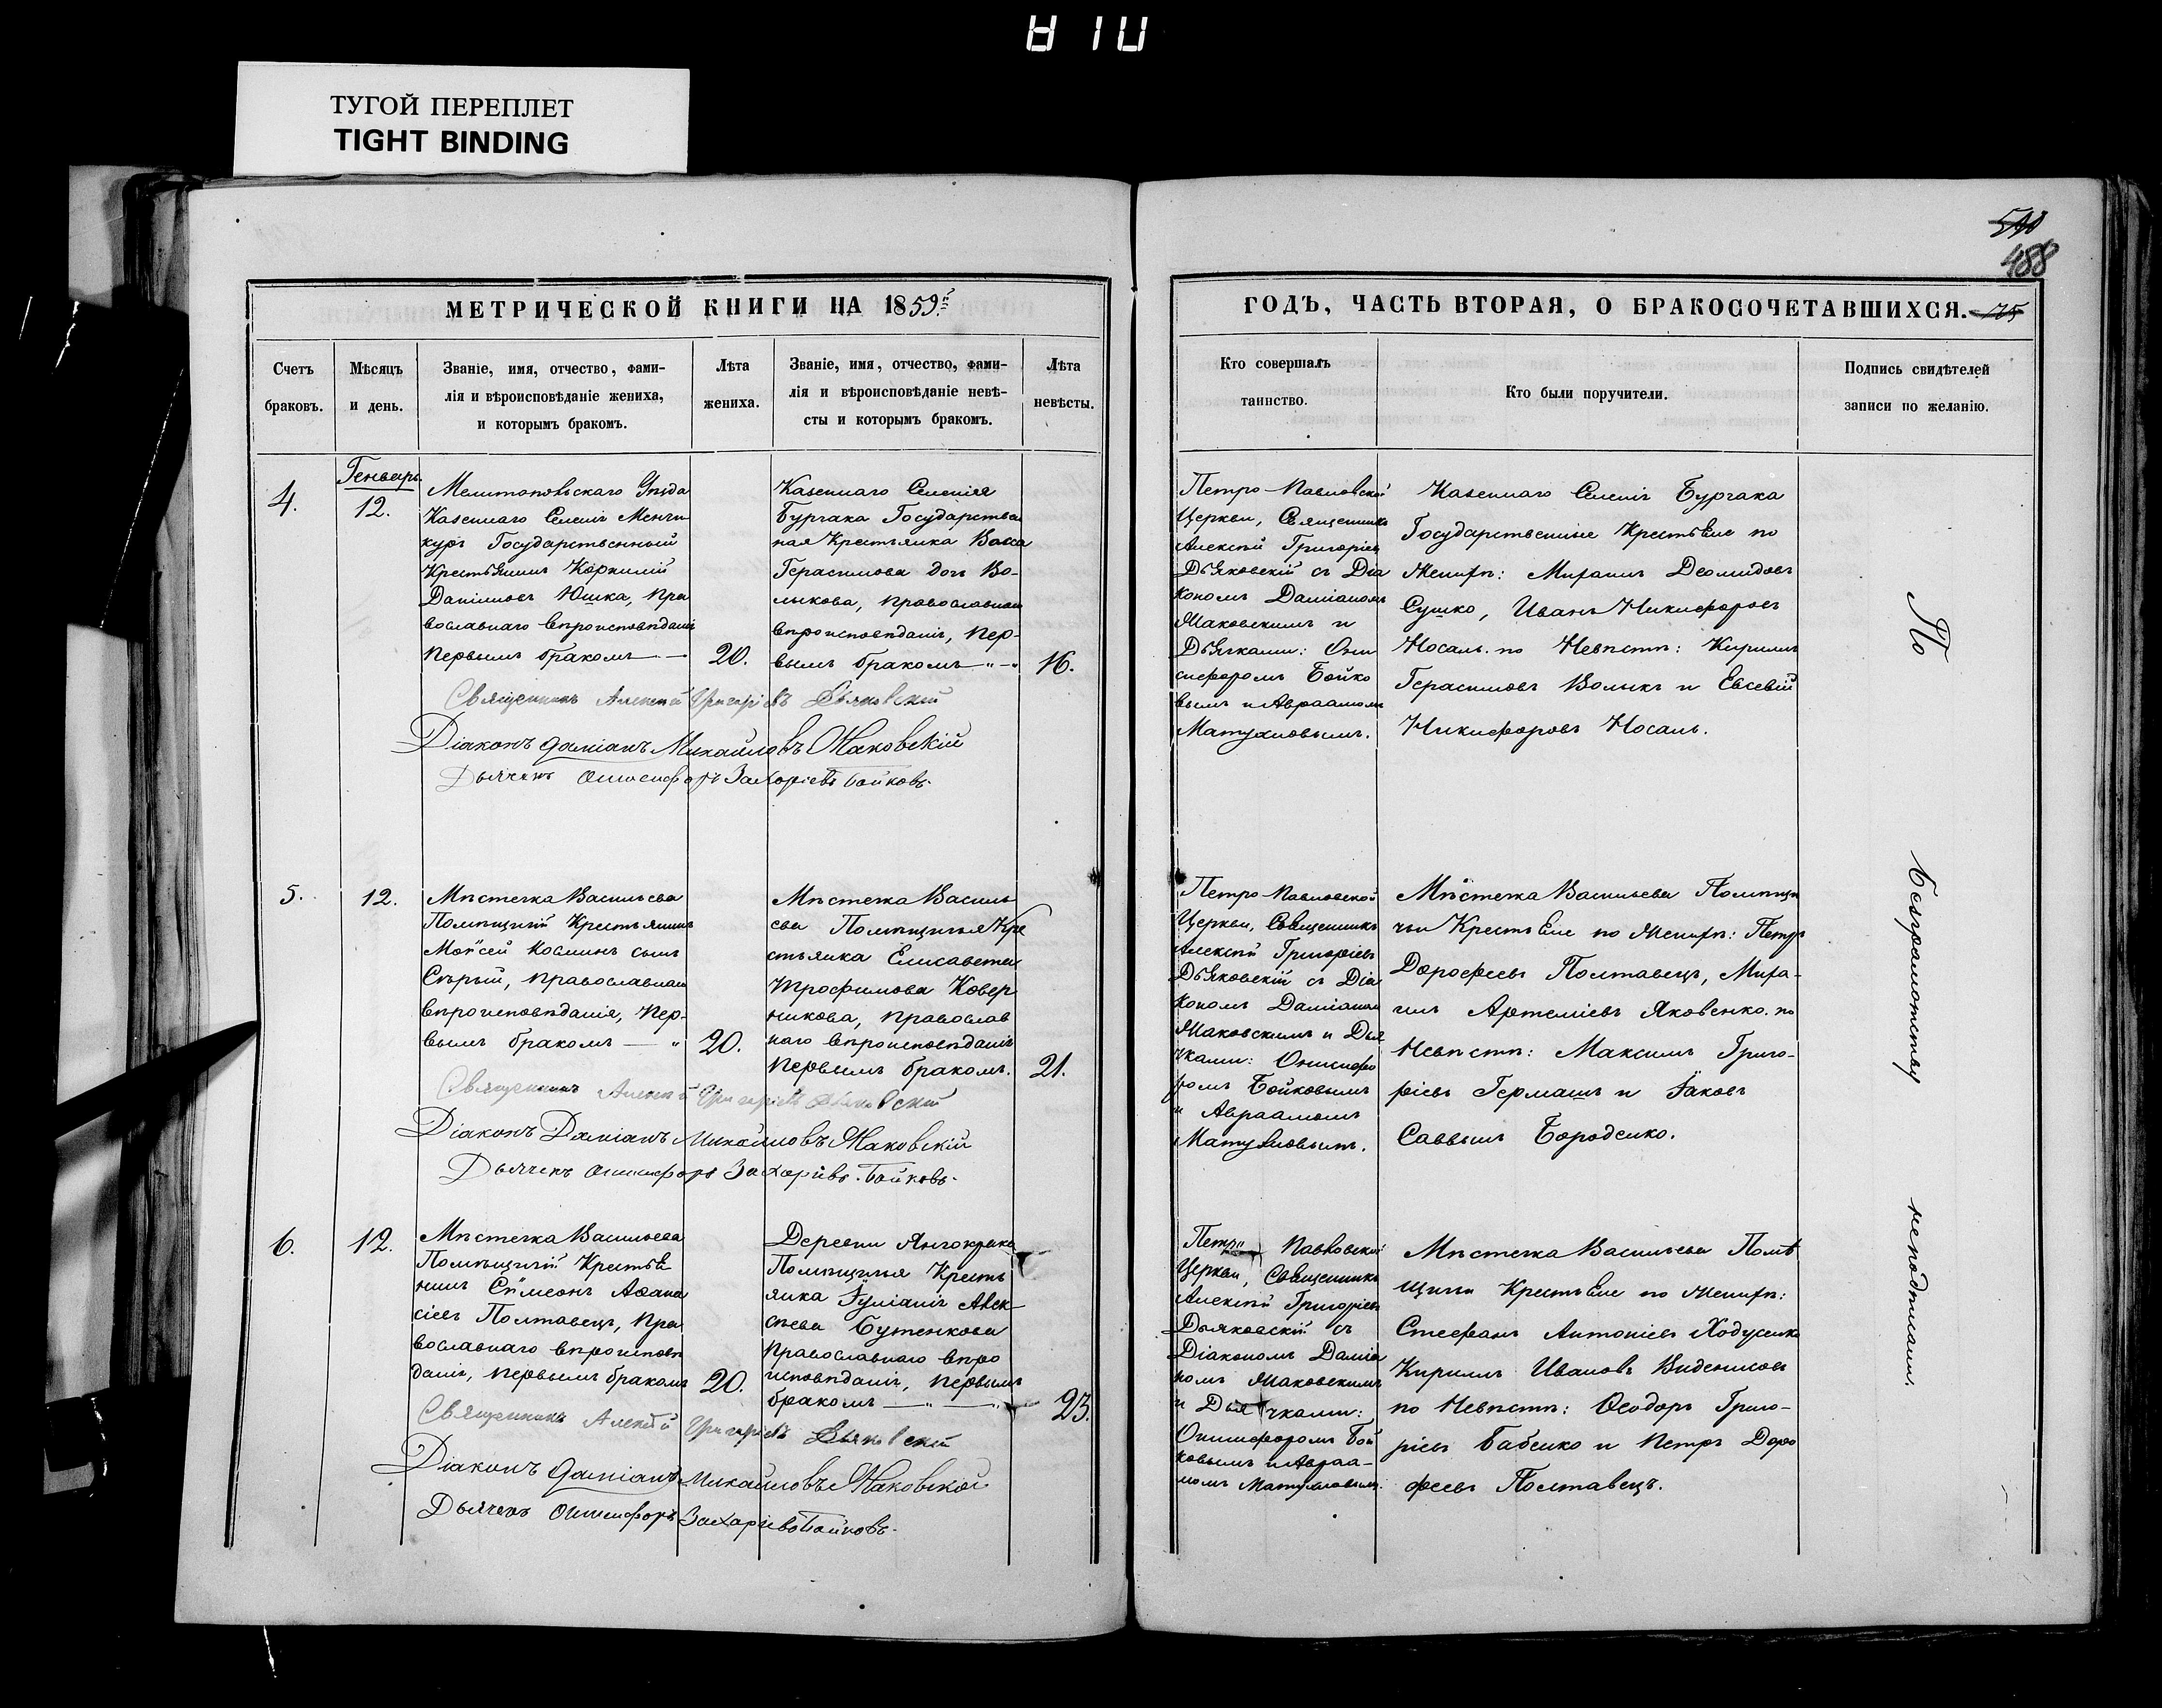 ТУГОЙ ПЕРЕПЛЕТ
TIGHT BINDING
488
МЕТРИЧЕСКОЙ КНИГИ НА 1859й
Счетъ
браковъ.
Мѣсяцъ
и день.
Званіе, имя, отчество, фами-
лія и вѣроисповѣданіе жениха,
и которымъ бракомъ.
Лѣта
жениха.
Званіе, имя, отчество, фами-
лія и вѣроисповѣданіе невѣ-
сты и которымъ бракомъ.
Лѣта
невѣсты.
4.
Генварь
12.
Мелитопольскаго Уѣзда
Казеннаго Селенія Менчи-
куръ Государственный
Крестьянинъ Корнилій
Даніиловъ Юшка, Пра
вославнаго вѣроисповѣданія
Первымъ бракомъ —
20.
Казеннаго Селенія
Бурчака Государствен
ная Крестьянка Васса
Герасимова дочь Во-
лыкова, православнаго
вѣроисповѣданія, Пер-
вымъ бракомъ
16.
Священникъ Алексѣй Григоріевъ Дьяковскій
Діаконъ Даміанъ Михайловъ Маковскій
Дьячекъ Онисифоръ Захаріевъ Бойковъ.
5.
12.
Мѣстечка Васильева
Помѣщичій Крестьянинъ
Моѵсей Косминъ сынъ
Сѣрый, православнаго
вѣроисповѣданія, Пер-
вымъ бракомъ —
20.
Мѣстечка Василь
ева Помѣщичья Кре
стьянка Елисавета
Трофимова Ковер
никова, православ
наго вѣроисповѣданія
первымъ бракомъ.
21.
Священникъ Алексѣй Григоріевъ Дьяковскій
Діаконъ Даміанъ Михайловъ Маковскій
Дьячекъ Онисифоръ Захаріевъ Бойковъ.
6.
12.
Мѣстечка Васильева
Помѣщичій Крестья
нинъ Сѵмеонъ Аѳана
сіевъ Полтавецъ, Пра
вославнаго вѣроисповѣ
данія, первымъ бракомъ
20.
Деревни Янчокрака
Помѣщичья Кресть
янка Іуліанія Алек-
сѣева Бутенкова
православнаго вѣро
исповѣданія, первымъ
бракомъ —
23.
Священникъ Алексѣй Григоріевъ Дьяковскій
Діаконъ Даміанъ Михайловъ Маковскій
Дьячекъ Онисифоръ Захаріевъ Бойковъ.
ГОДЪ, ЧАСТЬ ВТОРАЯ, О БРАКОСОЧЕТАВШИХСЯ.
Кто совершалъ
таинство.
Кто были поручители.
Подпись свидѣтелей
записи по желанію.
Петро-Павловской
Церкви, Священникъ
Алексѣй Григоріевъ
Дьяковскій съ Діа
кономъ Даміаномъ
Маковскимъ и
Дьячками: Они
сифоромъ Бойко
вымъ и Авраамомъ
Казеннаго Селенія Бурчака
Государственные Крестьяне по
Женихѣ: Михаилъ Деомидовъ
Сушко, Иванъ Никифоровъ
Носаль. по Невѣстѣ: Кириллъ
Герасимовъ Волыкъ и Евсевій
Никифоровъ Носаль.
Петро Павловской
Церкви, Священникъ
Алексѣй Григоріевъ
Дьяковскій съ Діа
кономъ Даміаномъ
Маковскимъ и Дья
чками: Онисифо
ромъ Бойковымъ
и Авраамомъ
Мѣстечка Васильева Помѣщи
чьи Крестьяне по Женихѣ: Петръ
Дорофеевъ Полтавецъ, Миха-
илъ Артеміевъ Яковенко. по
Невѣстѣ: Максимъ Григо-
ріевъ Гермашъ и Іаковъ
Саввинъ Бороденко.
Петро Павловской
Церкви, Священникъ
Алексѣй Григоріевъ
Дьяковскій съ
Діакономъ Даміа
номъ Маковскимъ
и Дьячками:
Онисифоромъ Бой
ковымъ и Авраа-
Мѣстечка Васильева Помѣ
щичьи Крестьяне по Женихѣ:
Стефанъ Антоніевъ Ходусенко
Кириллъ Ивановъ
по Невѣстѣ: Ѳеодоръ Григо-
ріевъ Бабенко и Петръ Доро
феевъ Полтавецъ.
По
безграмотству
неподписали.